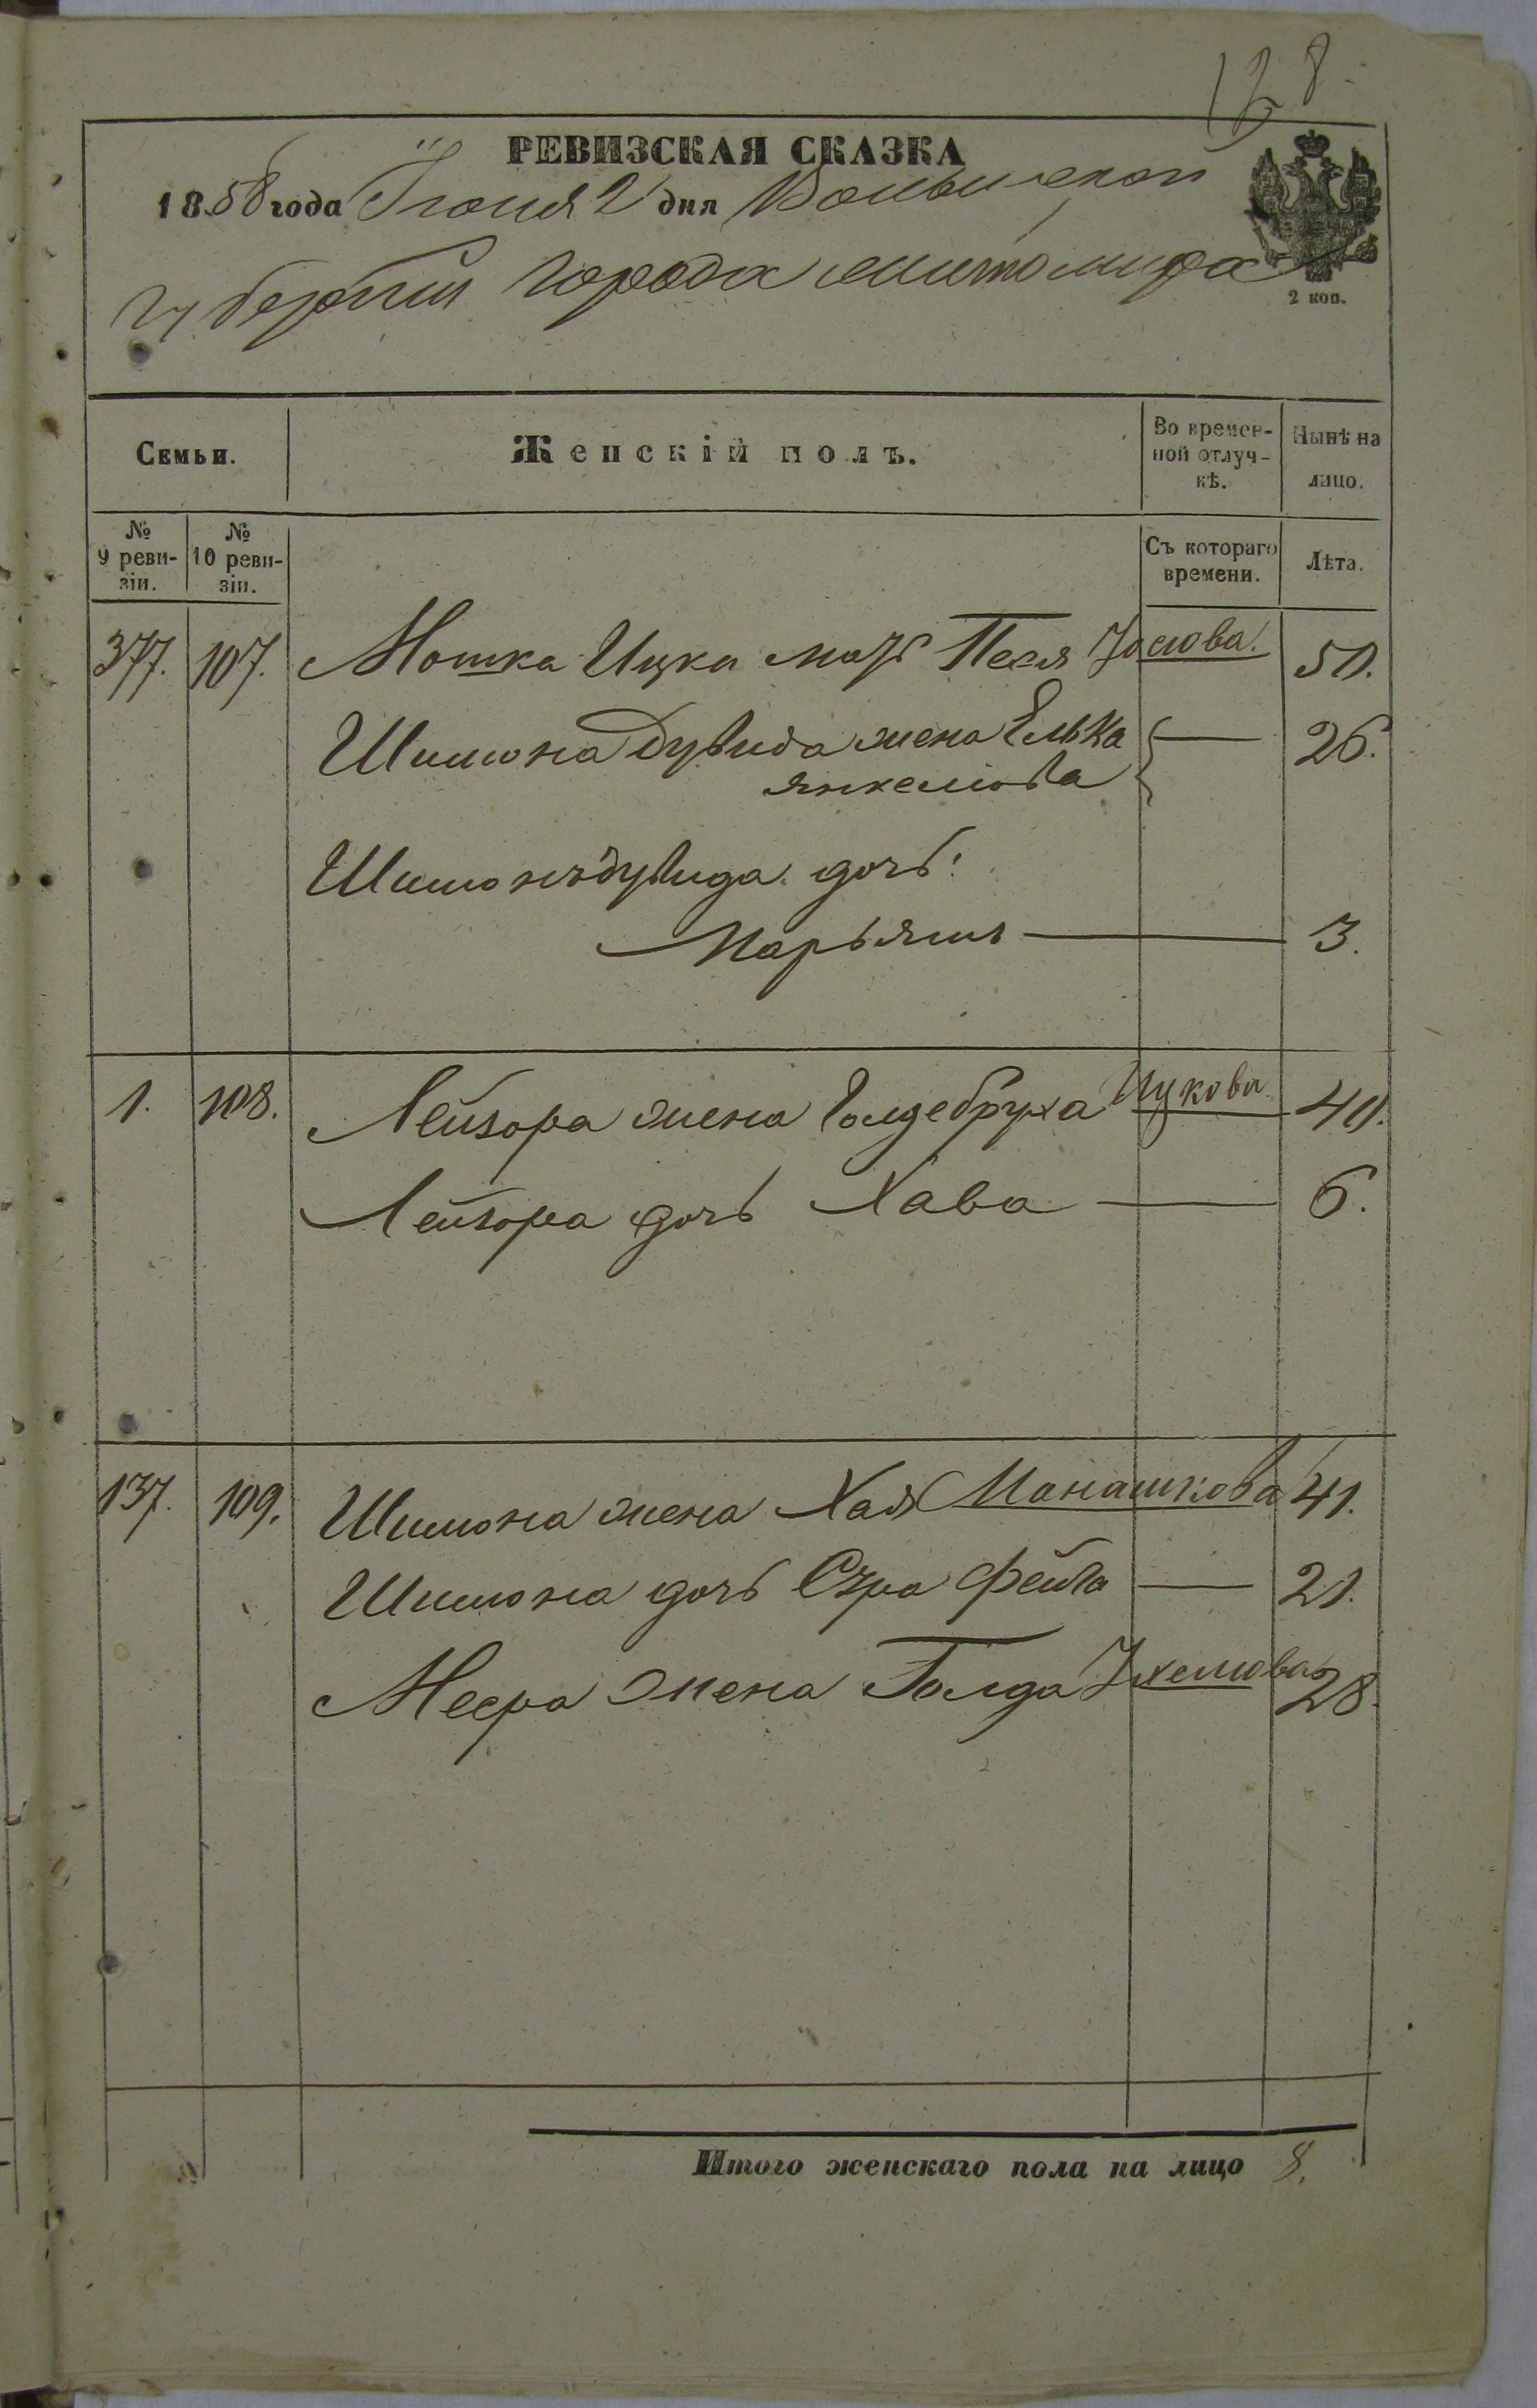 128.
РЕВИЗСКАЯ СКАЗКА
1858 года Іюня 2 дня Волынской
губерніи города Житомира
2 коп.
Семьи.
Женскій полъ.
Во времен-
ной отлуч-
кѣ.
Нынѣ на
лицо.
№
9 реви-
зіи.
№
10 реви-
зіи.
Съ котораго
времени.
Лѣта.
377. 107. Мошка Ицки мать Песя Іослова. 50.
Шимона Дувида жена Елька — 26.
Янкелиова
Шимонъ дувида дочь:
Марьямъ — 3.
1. 108. Лейзора жена Голдебруха Ицкова 40.
Лейзора дочь Хава — 6.
137. 109. Шимона жена Хая Манашкова 41.
Шимона дочь Сура Фейга — 21.
Меера жена Голда 28.
Итого женскаго пола на лицо 8.